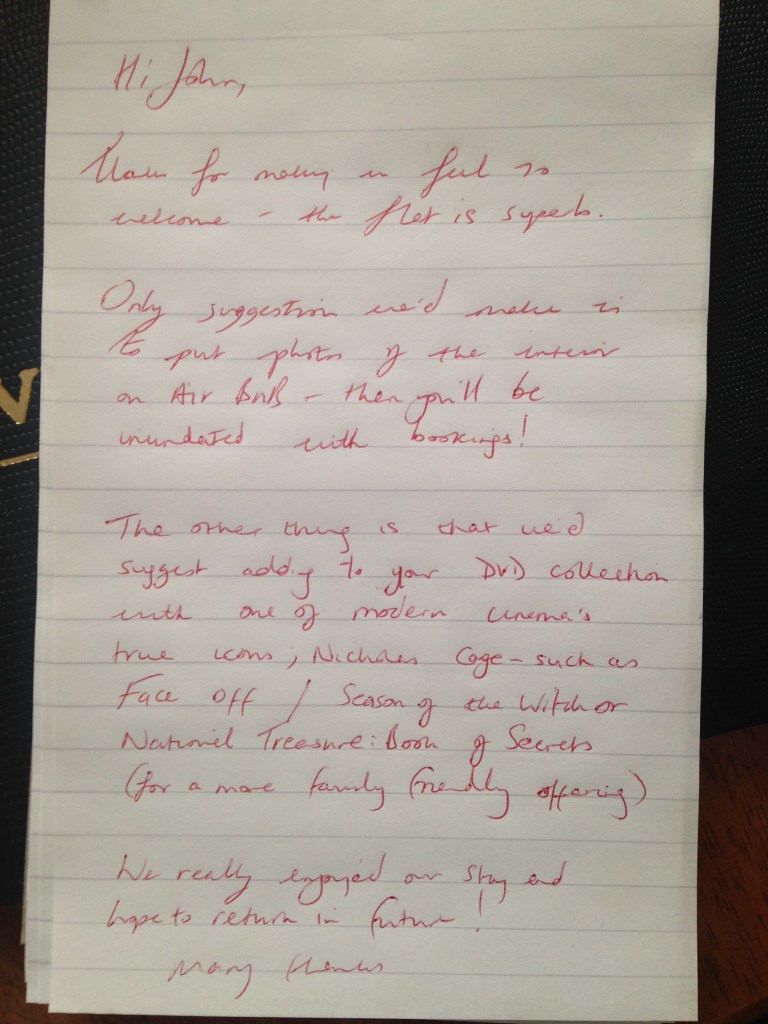 Hi John,
Thanks for making us feel so
welcome - the flat is superb.
Only suggestion we'd make is
to put photos of the interior
on Air BnB - then you'll be
inundated with bookings!
The other thing is that we'd
suggest adding to your DVD collection
with one of modern cinema's
true icons, Nicholas Cage - such as
Face Off / Season of the Witch or
National Treasure: Book of Secrets
(for a more family friendly offering)
We really enjoyed our stay and
hope to return in future!
Many thanks